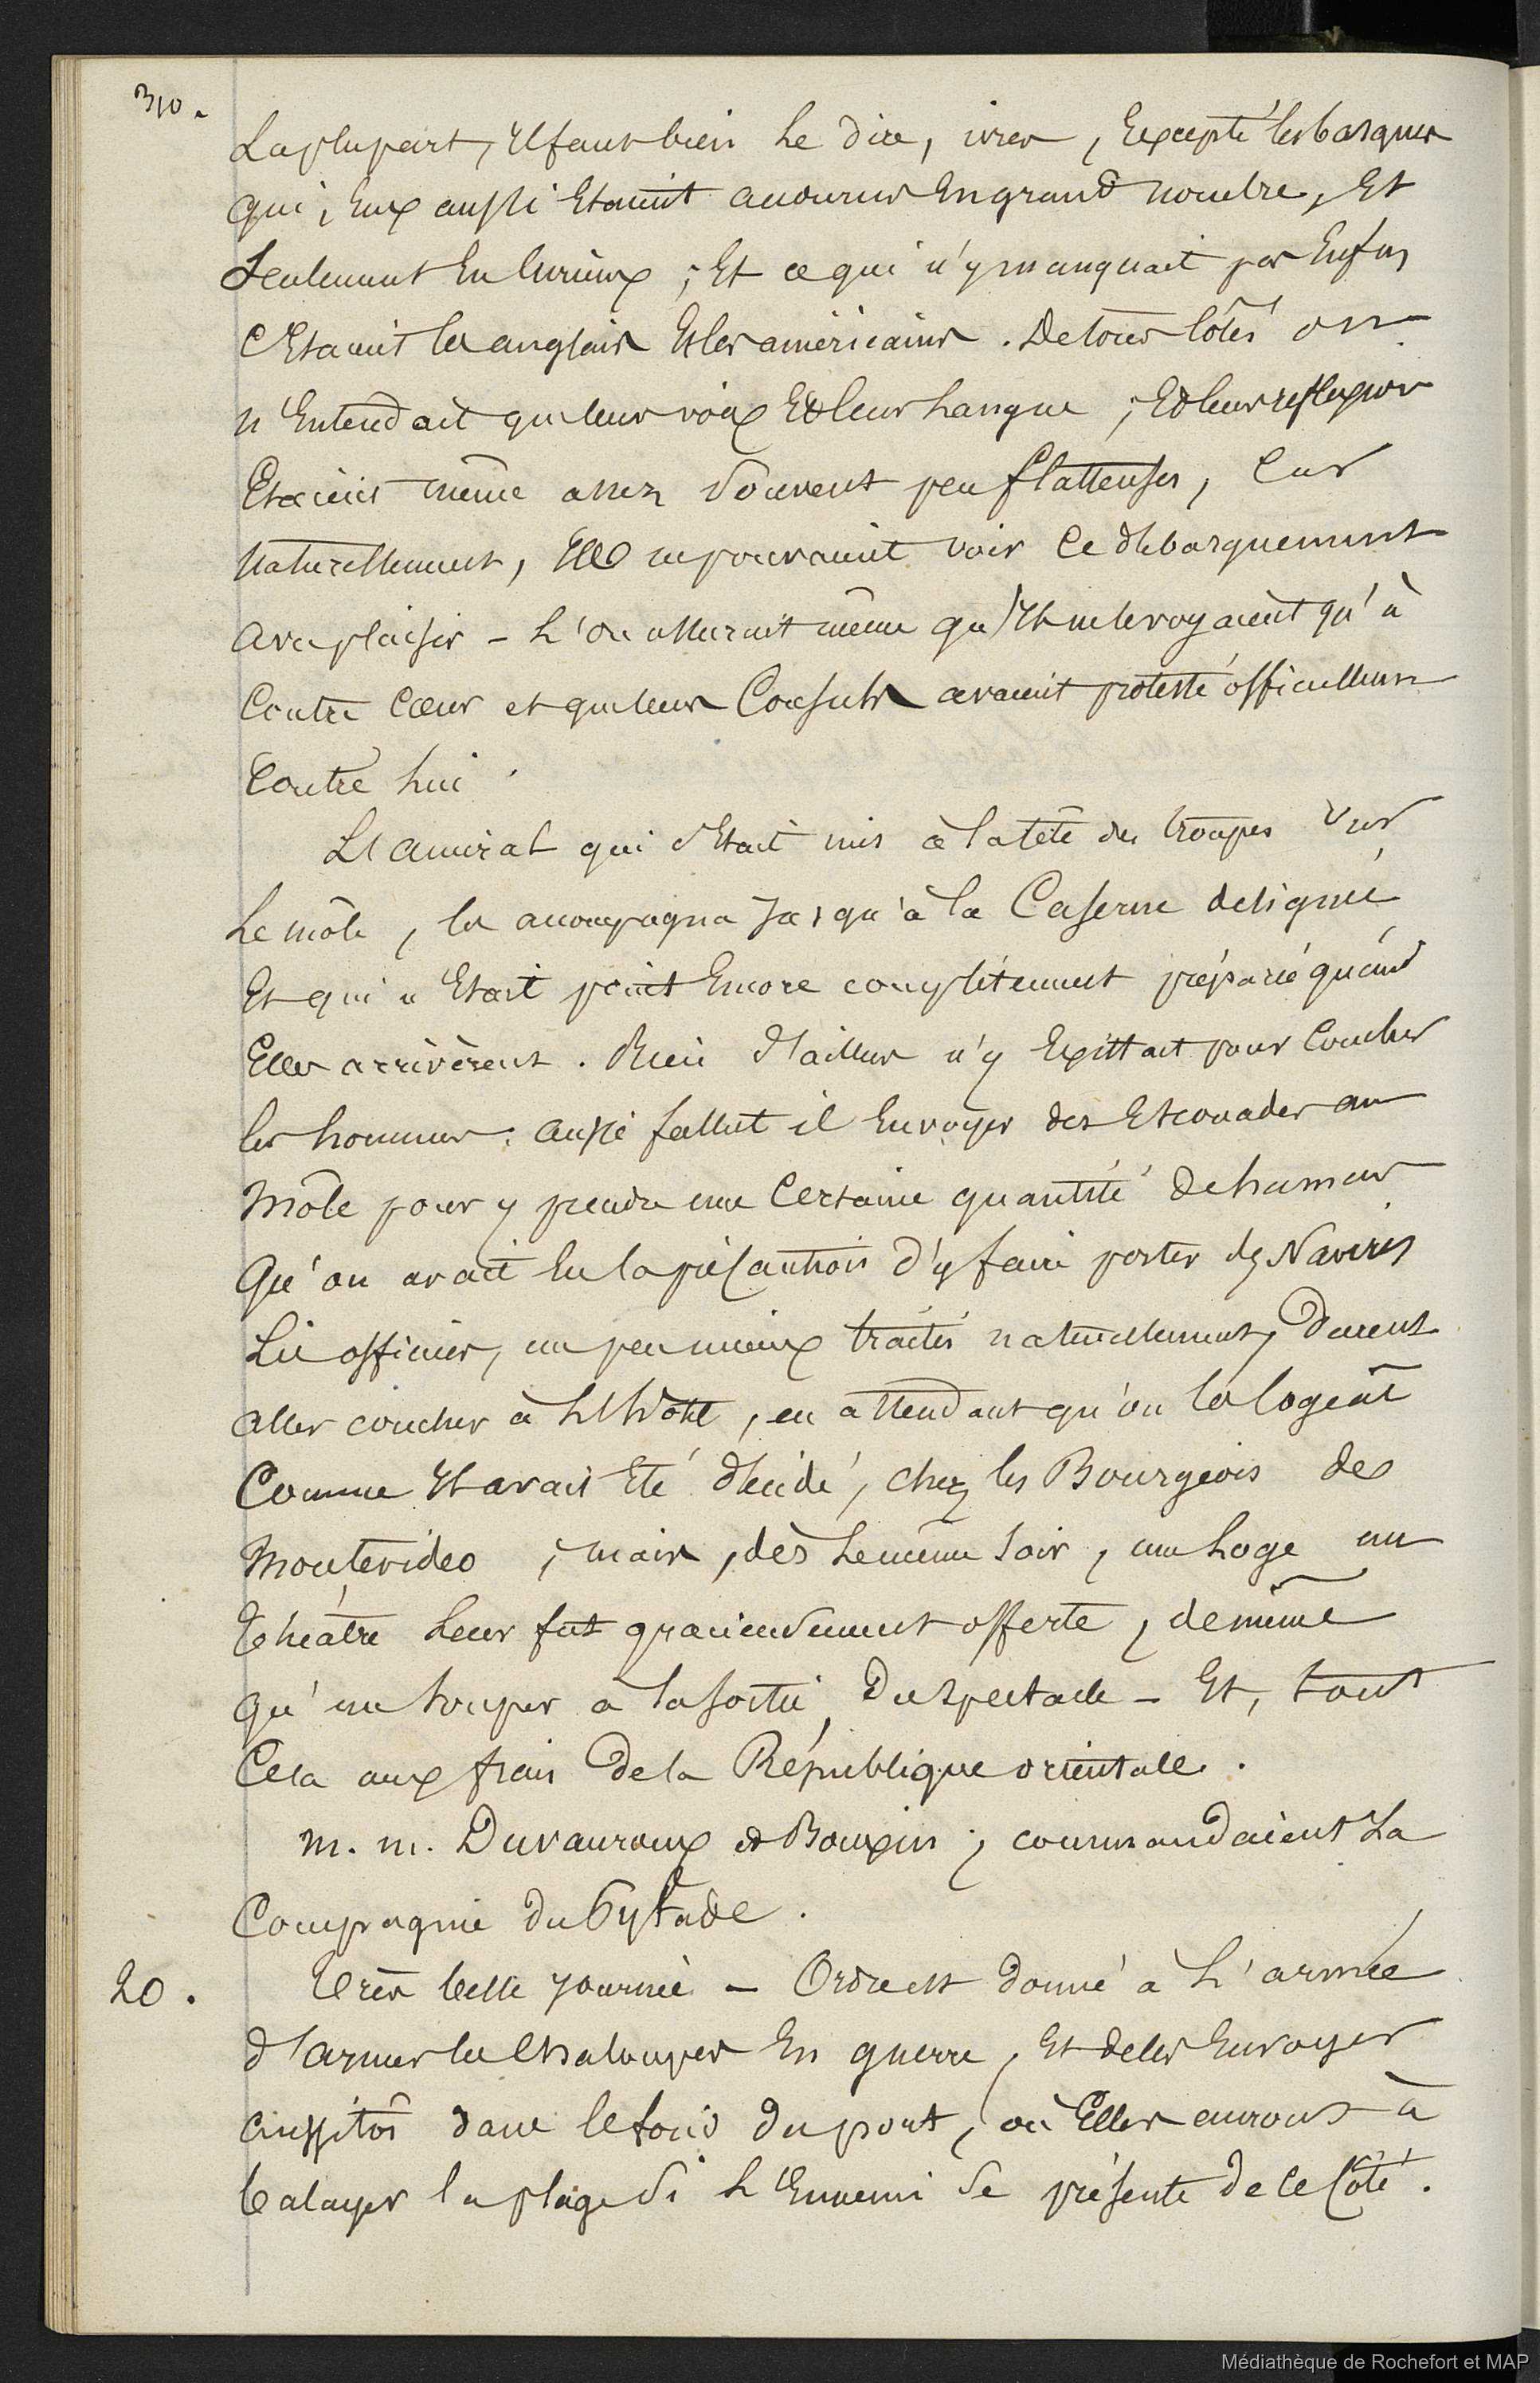 310.
La plupart, il faut bien le dire, ivres, Excepté les basques
qui, Eux aussi Etaient accourus En grand nombre, Et
Seulement En Curieux ; Et ce qui n'y manquait pas Enfin
C'Etaient les anglais Et les américains. De tous côtés on
n'Entendait que leur voix Et leur langue ; Et leurs reflexions
Etaient même assez Souvent peu flatteuses, Car
Naturellement, Ils ne pouvaient voir ce débarquement
avec plaisir - L'on assurait même qu'Ils ne le voyaient qu'à
Contre Cœur et que leurs Consuls avaient protesté officiellem
Contre lui.
L'amiral qui s'Etait mis à la tête des troupes sur
Le môle, les accompagna Jusqu'à la Caserne désignée
Et qui n'Etait point Encore complètement préparée quand
Elles arrivèrent. Rien d'ailleurs n'y Existait pour Coucher
les hommes. aussi fallut il Envoyer des Escouades au
Môle pour y prendre une Certaine quantité de hamacs
Qu'on avait Eu la précaution d'y faire porter des Navires
Les officiers, un peu mieux traités naturellement, Durent
aller coucher à L'hôtel, en attendant qu'on les logeât
Comme Il avait Eté décidé, chez les Bourgeois de
Montevideo ; mais, dès Le même Soir, une Loge au
Théâtre Leur fut gracieusement offerte, de même
qu'un Souper à la Sortie Du Spectacle - Et, tout
Cela aux frais De la République orientale.
M. M. Duvauroux et Bouxin ; commandaient La
Compagnie Du Pylade.
20. Très belle Journée - Ordre est donné à L'armée
d'armer les Chaloupes En guerre, Et de les Envoyer
aussitôt dans le fond du port, où Elles auront à
balayer la plage Si L'Ennemi Se présente de ce Côté.
Médiathèque de Rochefort et MAP